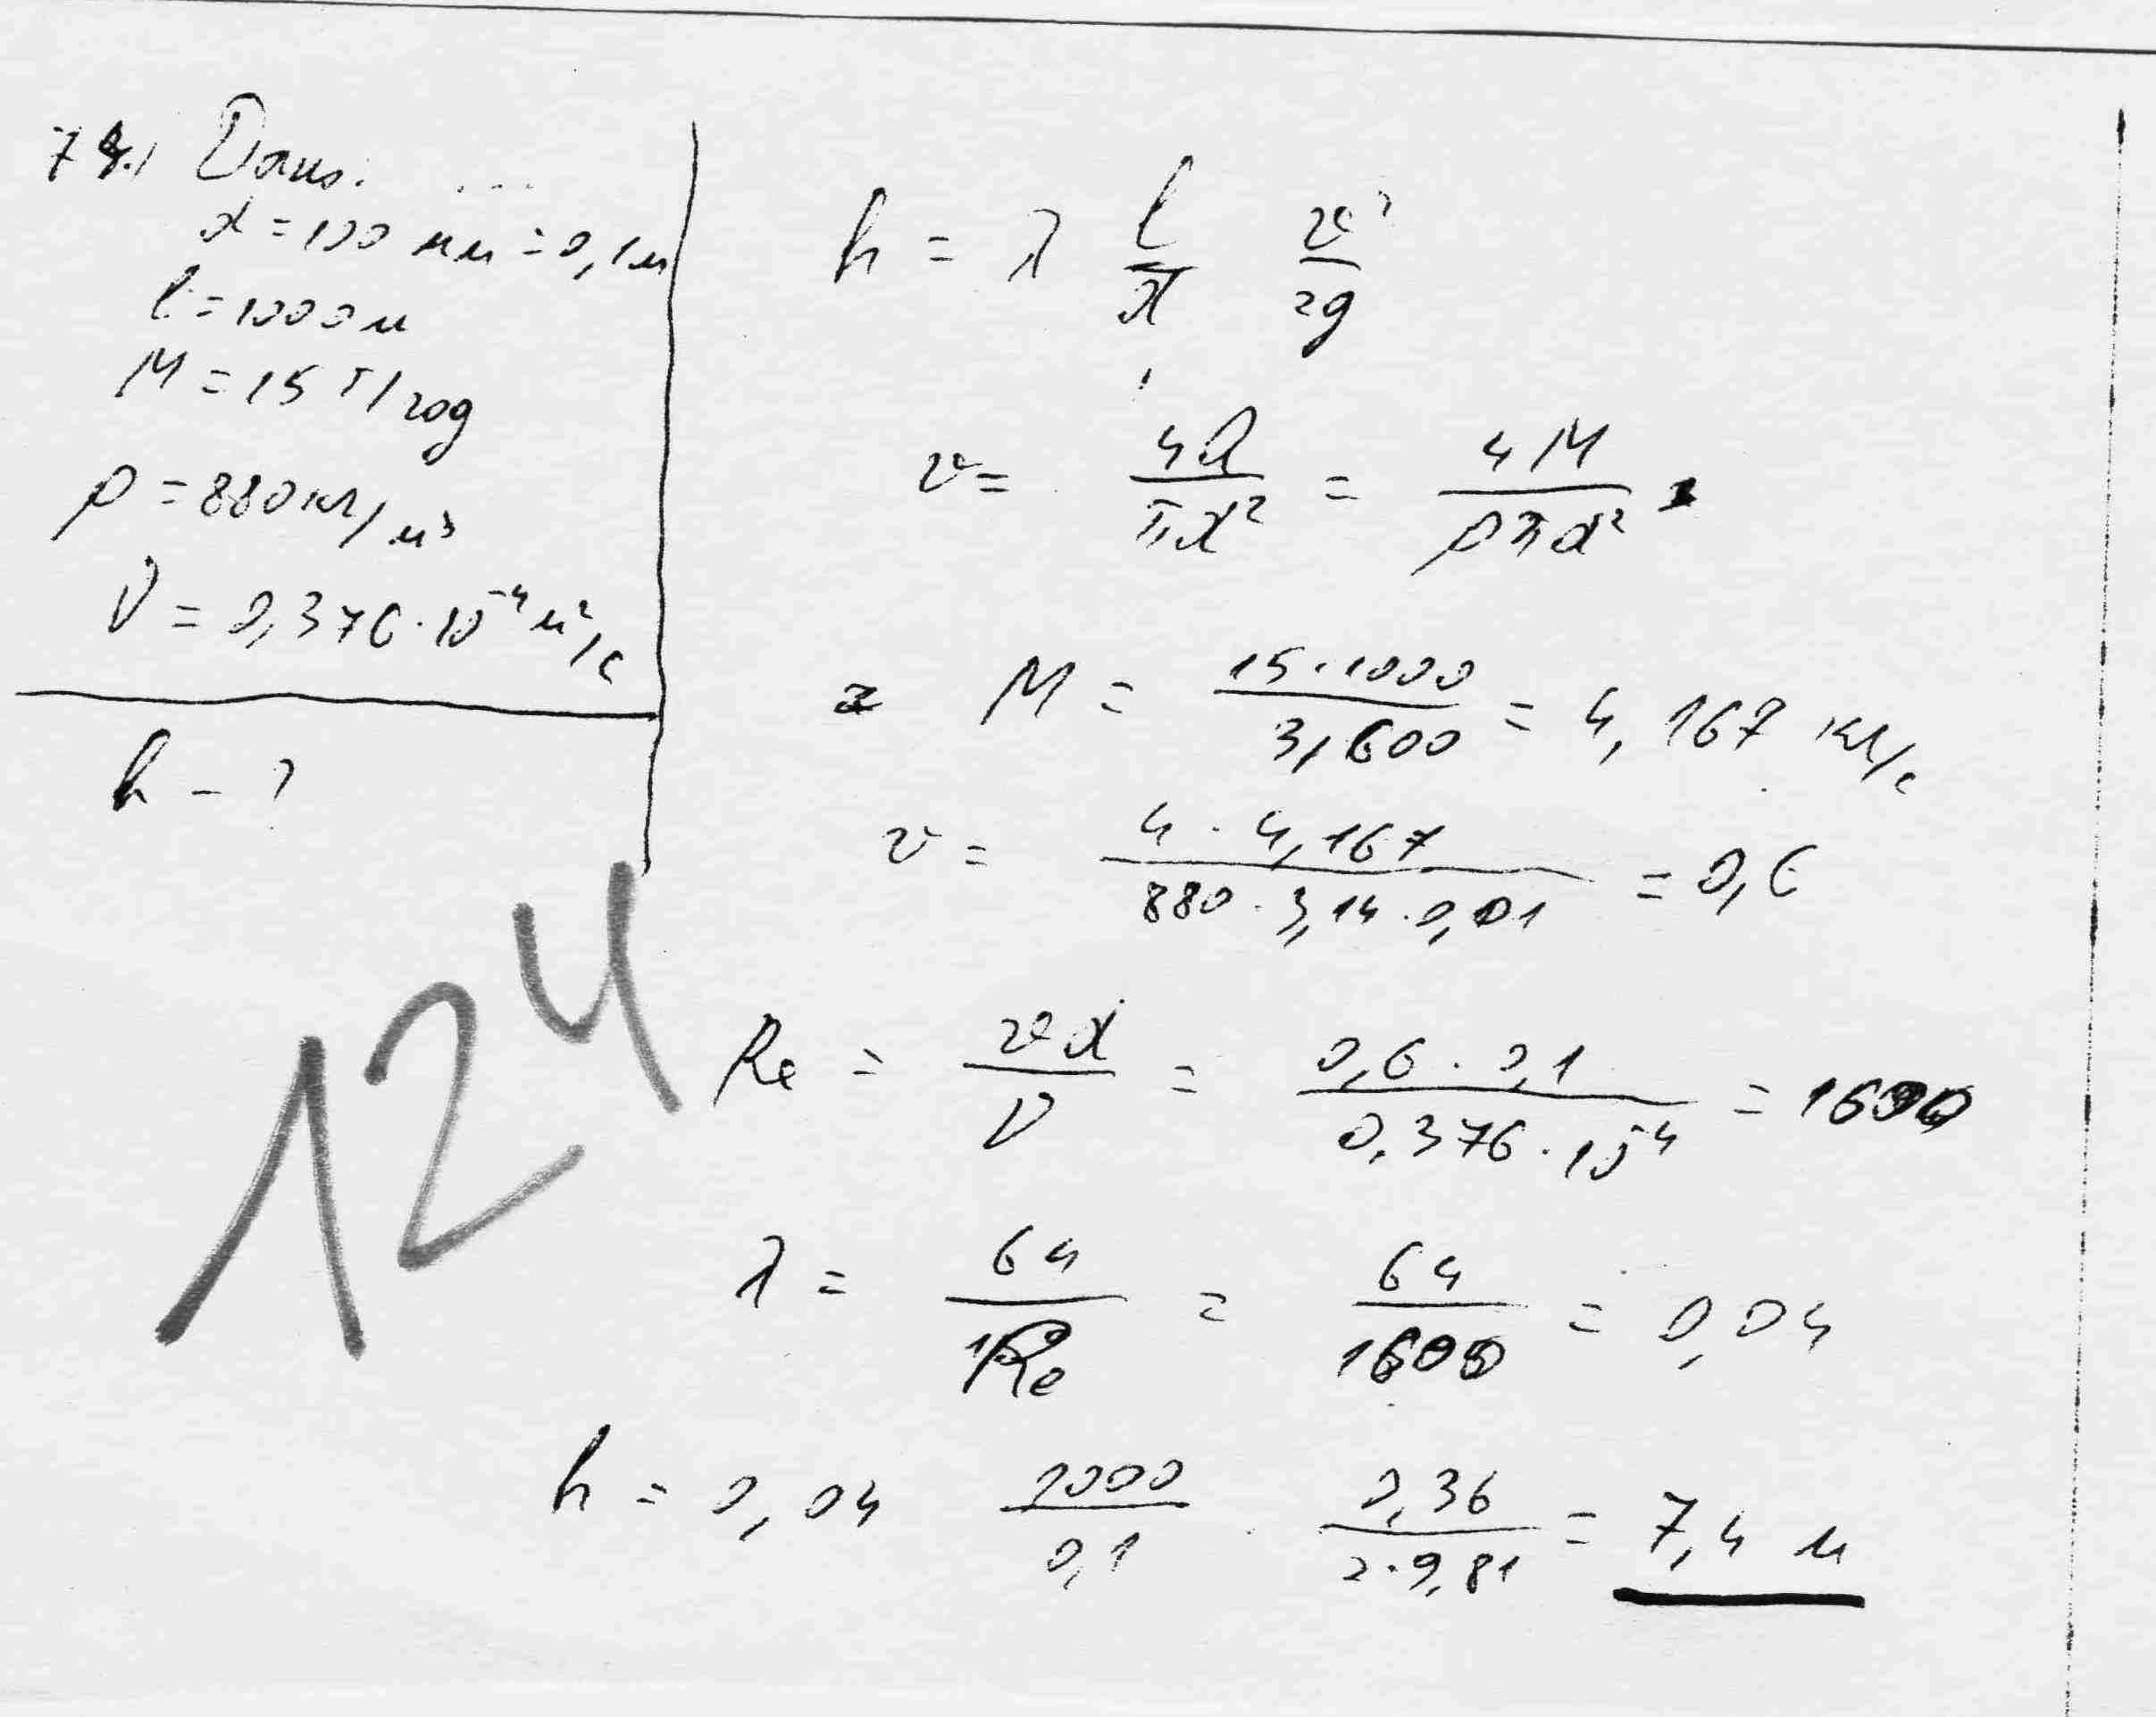 7 4.1 Дано:
d = 100 мм = 0,1м
l = 1000 м
M = 15 т/год
ρ = 880 кг/м³
ν = 0,376·10⁻⁴ м²/с
h - ?
124
h = λ l/d v²/2g
v = 4Q/πd² = 4M/ρπd²
M = 15·1000/3,600 = 4,167 кг/с
v = 4·4,167/880·3,14·0,01 = 0,6
Re = vd/ν = 0,6·0,1/0,376·10⁻⁴ = 1600
λ = 64/Re = 64/1600 = 0,04
h = 0,04 1000/0,1 · 0,36/2·9,81 = 7,4 м